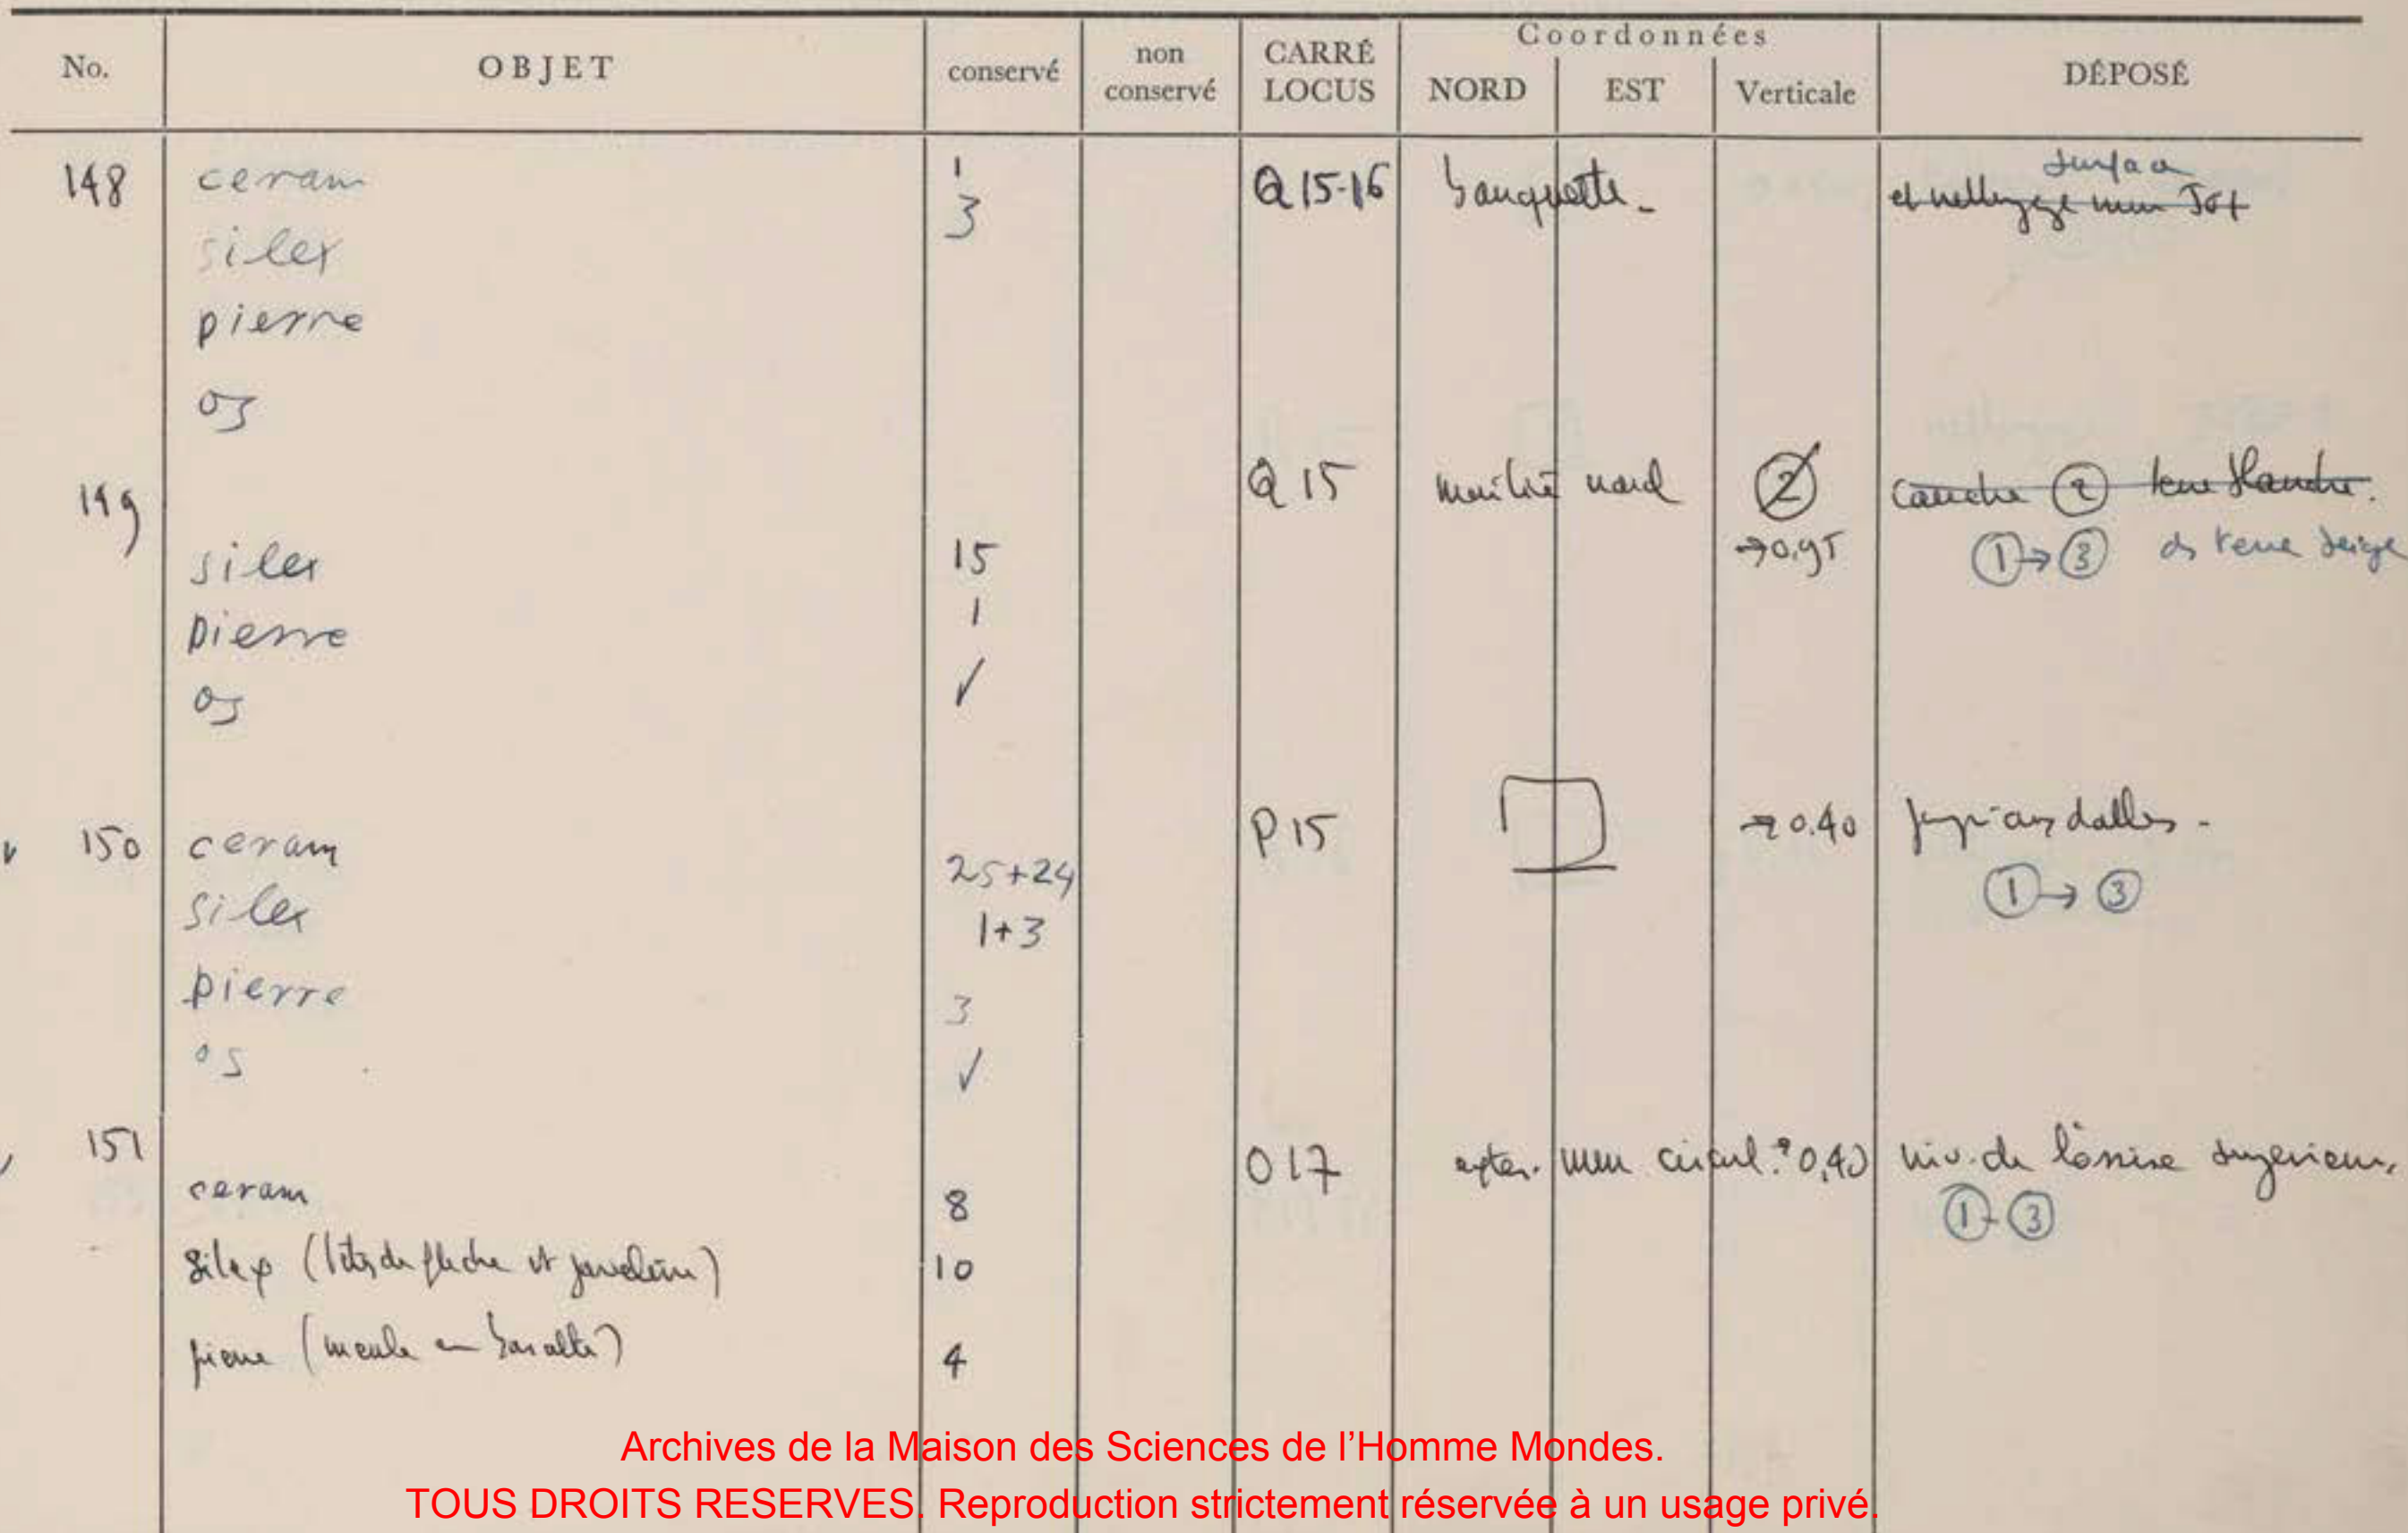 No. OBJET conservé non conservé CARRÉ LOCUS Coordonnées NORD EST Verticale DÉPOSÉ
148 ceram 1 Q 15-16 banquette - surface
silex 3 et nettoyage mur
pierre
os
149 Q 15 moitié nord 2 couche 2 terre blanche.
silex 15 →0.95 1→3 ds terre beige
pierre 1
os ✓
v 150 ceram 25+24 P 15 →0.40 jusqu'aux dalles -
silex 1+3 1→3
pierre 3
os ✓
151 O 17 exter. mur circul. 0,40 niv. de l'assise superieure
ceram 8 1-3
silex (têtes de fleche et javeline) 10
pierre (meule en basalte) 4
Archives de la Maison des Sciences de l'Homme Mondes.
TOUS DROITS RESERVES. Reproduction strictement réservée à un usage privé.